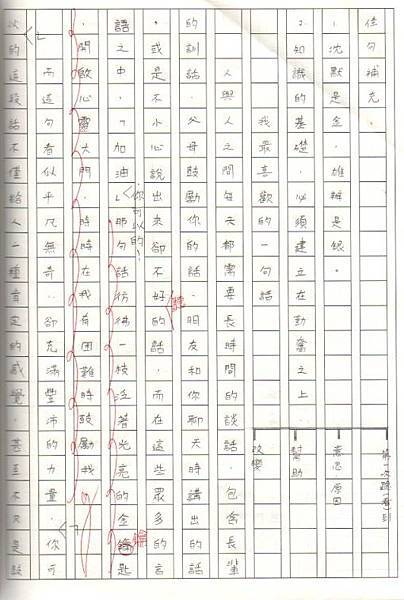 佳句補充
1.沈默是金,雄辯是銀。
2.知識的基礎,必須建立在勤奮之上。
我最喜歡的一句話
第一次聽(看)到
意思 原因
幫助
改變
人與人之間每天都需要長時間的談話,包含長輩
的訓話,父母鼓勵你的話,朋友和你在聊天時講出的話
,或是不小心說出來卻不好聽的話,而在這些眾多言
語之中,「加油,你可以的!」那句話彷彿一枝泛著光亮的金鑰匙
,開啟心靈大門,時時在我有困難時鼓勵我
而這句看似平凡無奇,卻充滿豐沛的力量,「你可
以的」這段話不僅給人一種肯定的感覺,甚至不只是鼓